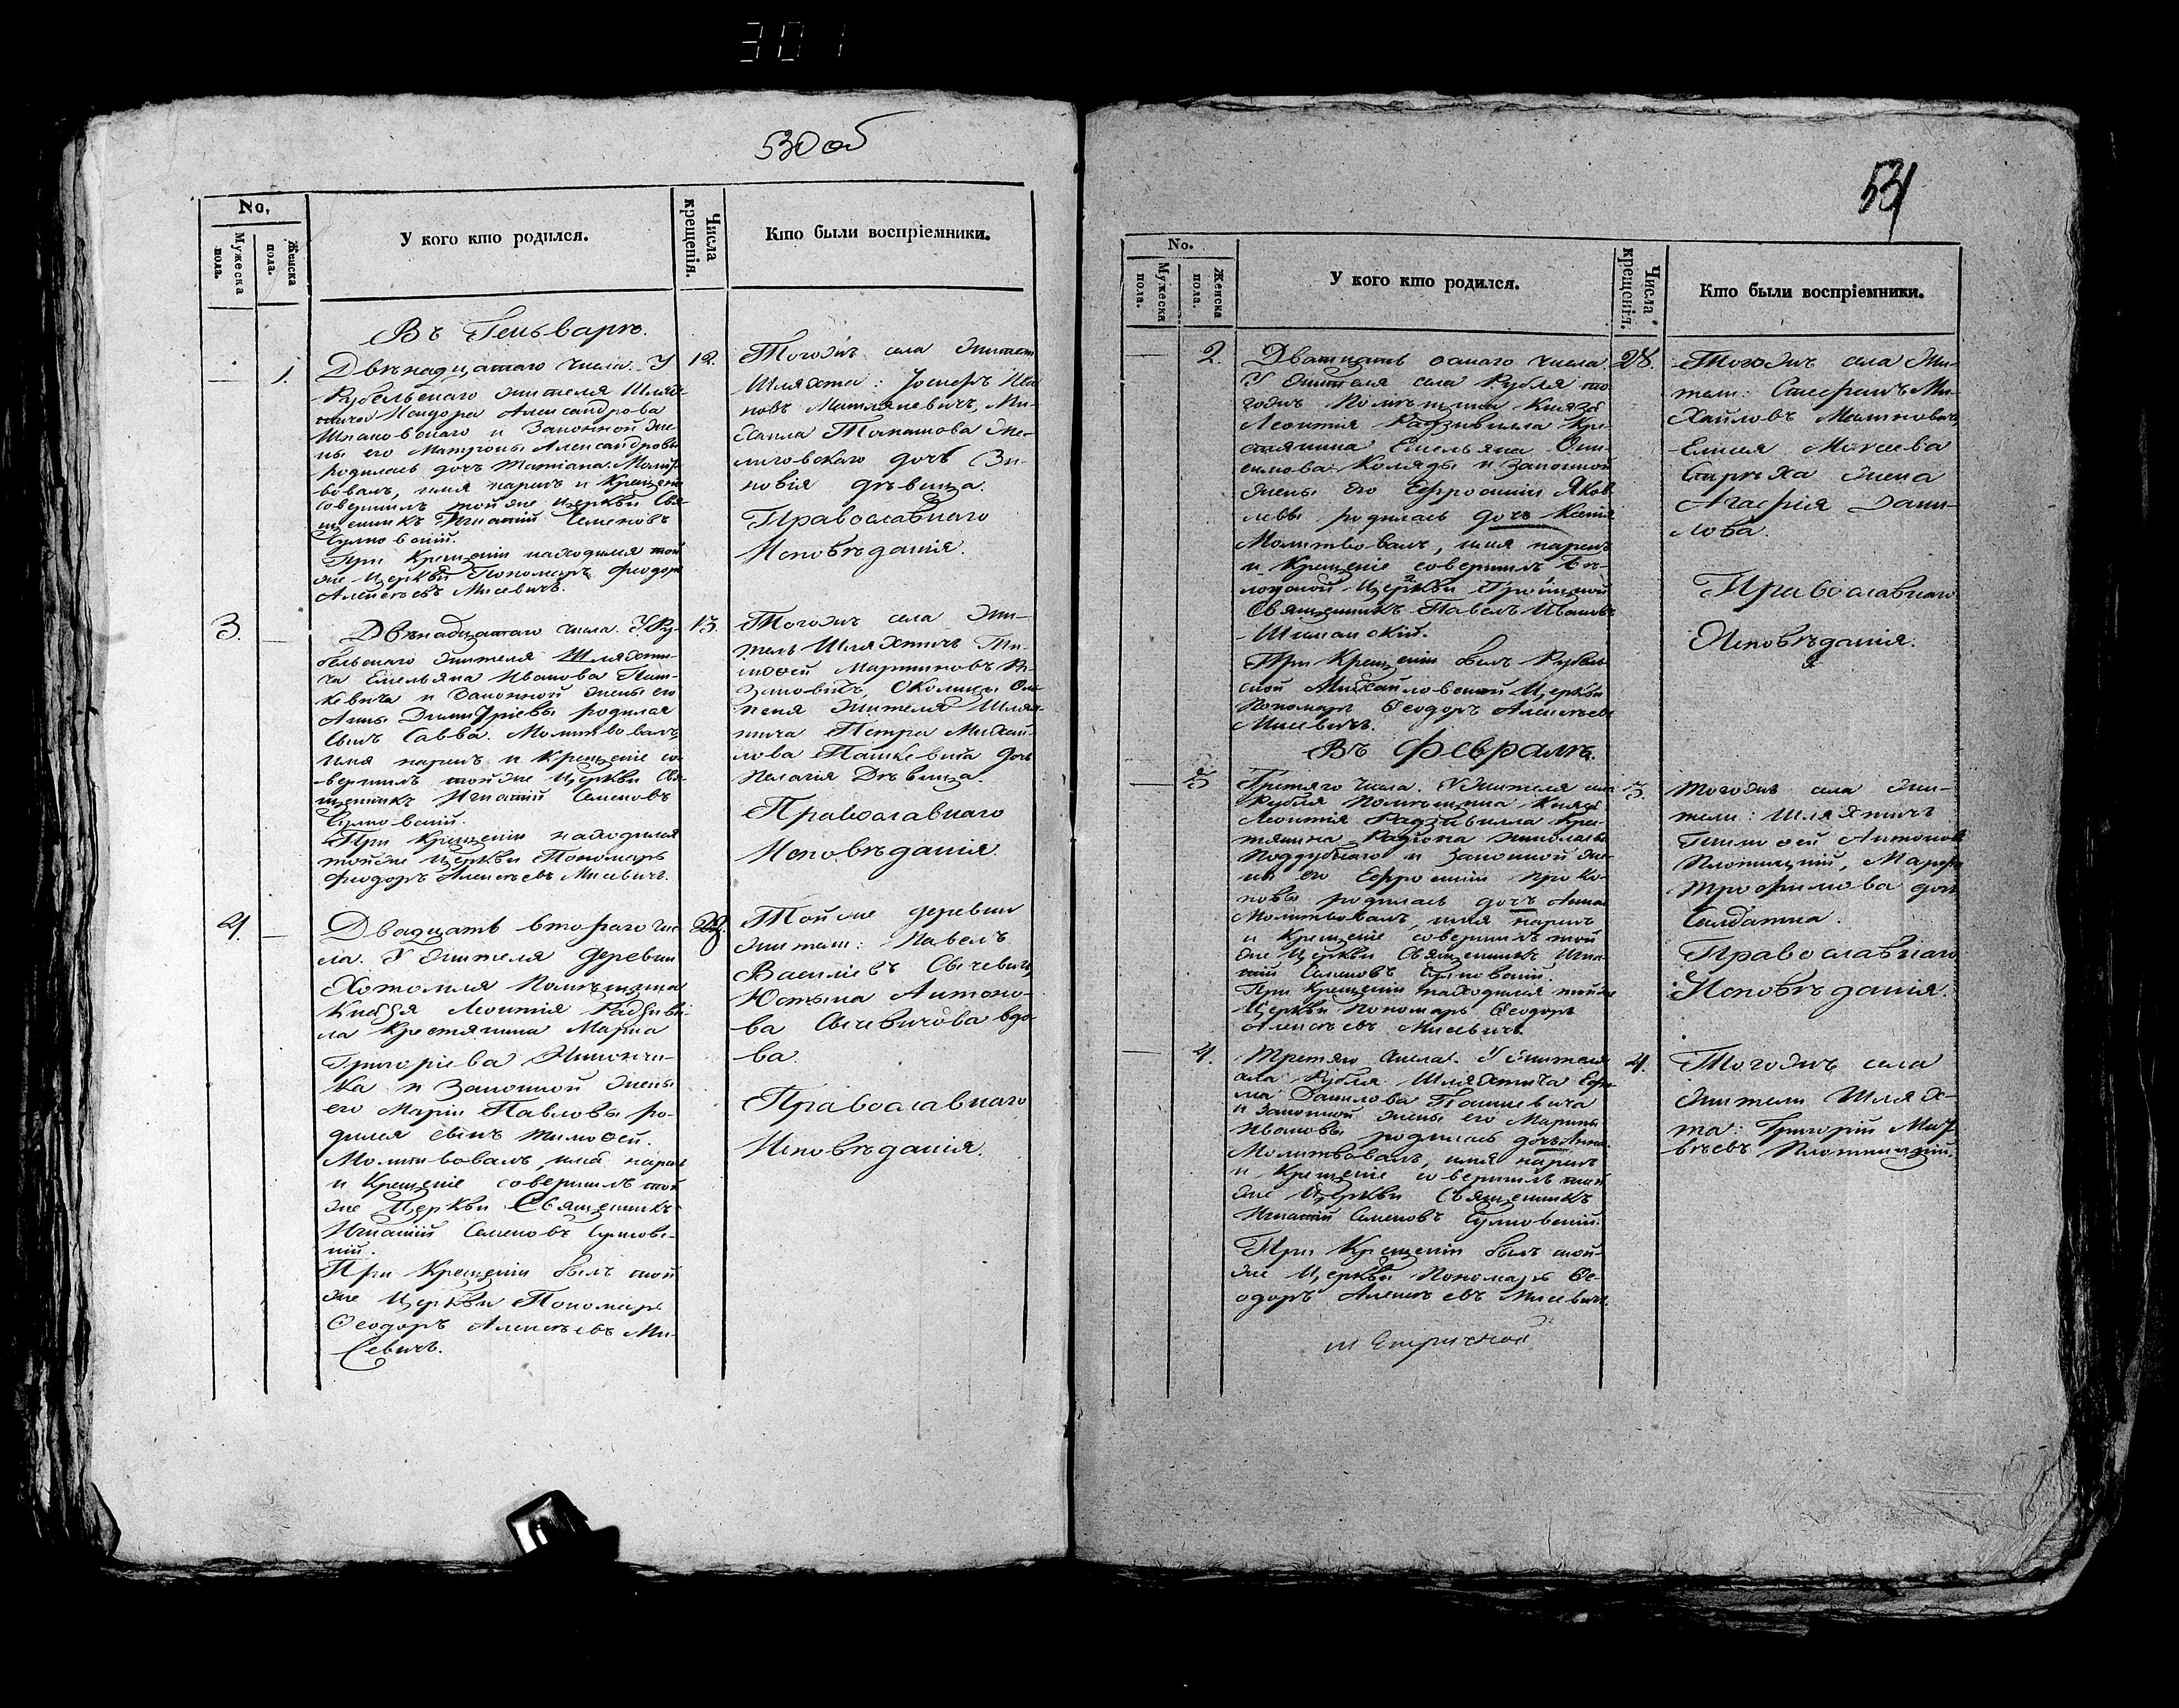 301
530 об
No.
Мужеска пола.
Женска пола.
У кого кто родился.
Числа крещенія.
Кто были воспріемники.
Въ Геньварѣ.
1.
Двѣнадцатаго числа. У
Рубельскаго жителя Шлях-
тича Александрова
и Законной же-
ны его Матроны Александровы
родилась дочь Татіана. Молит-
вовалъ, имя нарекъ и Крещеніе
совершилъ той же Церкви Свя-
щенникъ Игнатій Семеновъ
При Крещеніи находился той
же Церкви Пономарь Феодоръ
Алексѣевъ Мисевичъ.
12.
Тогожъ села жители
Шляхта: Іосифъ Ива
новъ Ми-
хаила
дочь Зи-
новія дѣвица.
Православнаго
Исповѣданія.
3.
Двѣнадцатаго числа. У Ру-
бельскаго жителя Шляхти-
ча Емельяна Иванова Паш-
кевича и Законной жены его
Анны Димитріевы родился
сынъ Савва. Молитвовалъ,
имя нарекъ и Крещеніе со-
вершилъ той же Церкви Свя-
щенникъ Игнатій Семеновъ
При Крещеніи находился
тойже Церкви Пономарь
Феодоръ Алексѣевъ Мисевичъ.
13.
Тогожъ села Жи-
тель Шляхтичъ Ти-
моѳей Мартиновъ
Околицы
жителя Шлях-
тича Петра Михай-
лова Пашкевича дочь
Пелагія Дѣвица.
Православнаго
Исповѣданія.
4.
Двадцать втораго чис
ла. У жителя деревни
Хотомля Помѣщика
Князя Леонтія Радзиви-
ла Крестянина Марка
Григоріева
ка и Законной жены
его Маріи Павловы ро-
дился сынъ Тимоѳей.
Молитвовалъ, имя нарекъ
и Крещеніе совершилъ той
же Церкви Священникъ
Игнатій Семеновъ
При Крещеніи былъ той
же Церкви Пономарь
Ѳеодоръ Алексѣевъ Ми-
севичъ.
Той же деревни
жители: Павелъ
Василіевъ
Антоно-
ва вдо-
ва.
Православнаго
Исповѣданія.
531
No.
Мужеска пола.
Женска пола.
У кого кто родился.
Числа крещенія.
Кто были воспріемники.
2.
Дватцать осмаго числа.
У жителя села Рубля то-
гожъ Помѣщика Князя
Леонтія Радзивилла Кре-
стянина Емельяна Они-
симова Коляды и законной
жены его Ефросиніи Яков
левы родилась дочь Ксенія
Молитвовалъ, имя нарекъ
и Крещеніе совершилъ
Церкви Троицкой
Священникъ Павелъ Ивановъ
При Крещеніи былъ Рубель
ской Михайловской Церкви
Пономарь Ѳеодоръ Алексѣевъ
Мисевичъ.
28.
Тогожъ села Жи-
тели: Стефанъ Ми-
хайловъ
Елисея Моисеева
жена
Агафія Дани-
лова.
Православнаго
Исповѣданія.
Въ Февралѣ.
3
Третяго числа. У Жителя села
Рубля Помѣщика Князя
Леонтія Радзивилла Кре-
стянина Радіона Николаева
Поддубнаго и законной же-
ны его Ефросиніи Проко-
повы родилась дочь Анна
Молитвовалъ, имя нарекъ
и Крещеніе совершилъ той
же Церкви Священникъ Игна-
тій Семеновъ
При Крещеніи находился тойже
Церкви Пономарь Ѳеодоръ
Алексѣевъ Мисевичъ.
3.
Тогожъ села жи-
тели: Шляхтичъ
Тимоѳей Антоновъ
Плотницкій, Марфа
Трофимова дочь
Солдатка.
Православнаго
Исповѣданія.
4.
Третяго числа. У жителя
села Рубля Шляхтича
Данилова Пашкевича
и законной жены его Марины
Ивановы родилась дочь Анна.
Молитвовалъ, имя нарекъ
и Крещеніе совершилъ той
же Церкви Священникъ
Игнатій Семеновъ
При Крещеніи былъ той-
же Церкви Пономарь Ѳе-
одоръ Алексѣевъ Мисевичъ.
4.
Тогожъ села
жители Шлях-
та: Григорій Мат-
вѣевъ Плотницкій.